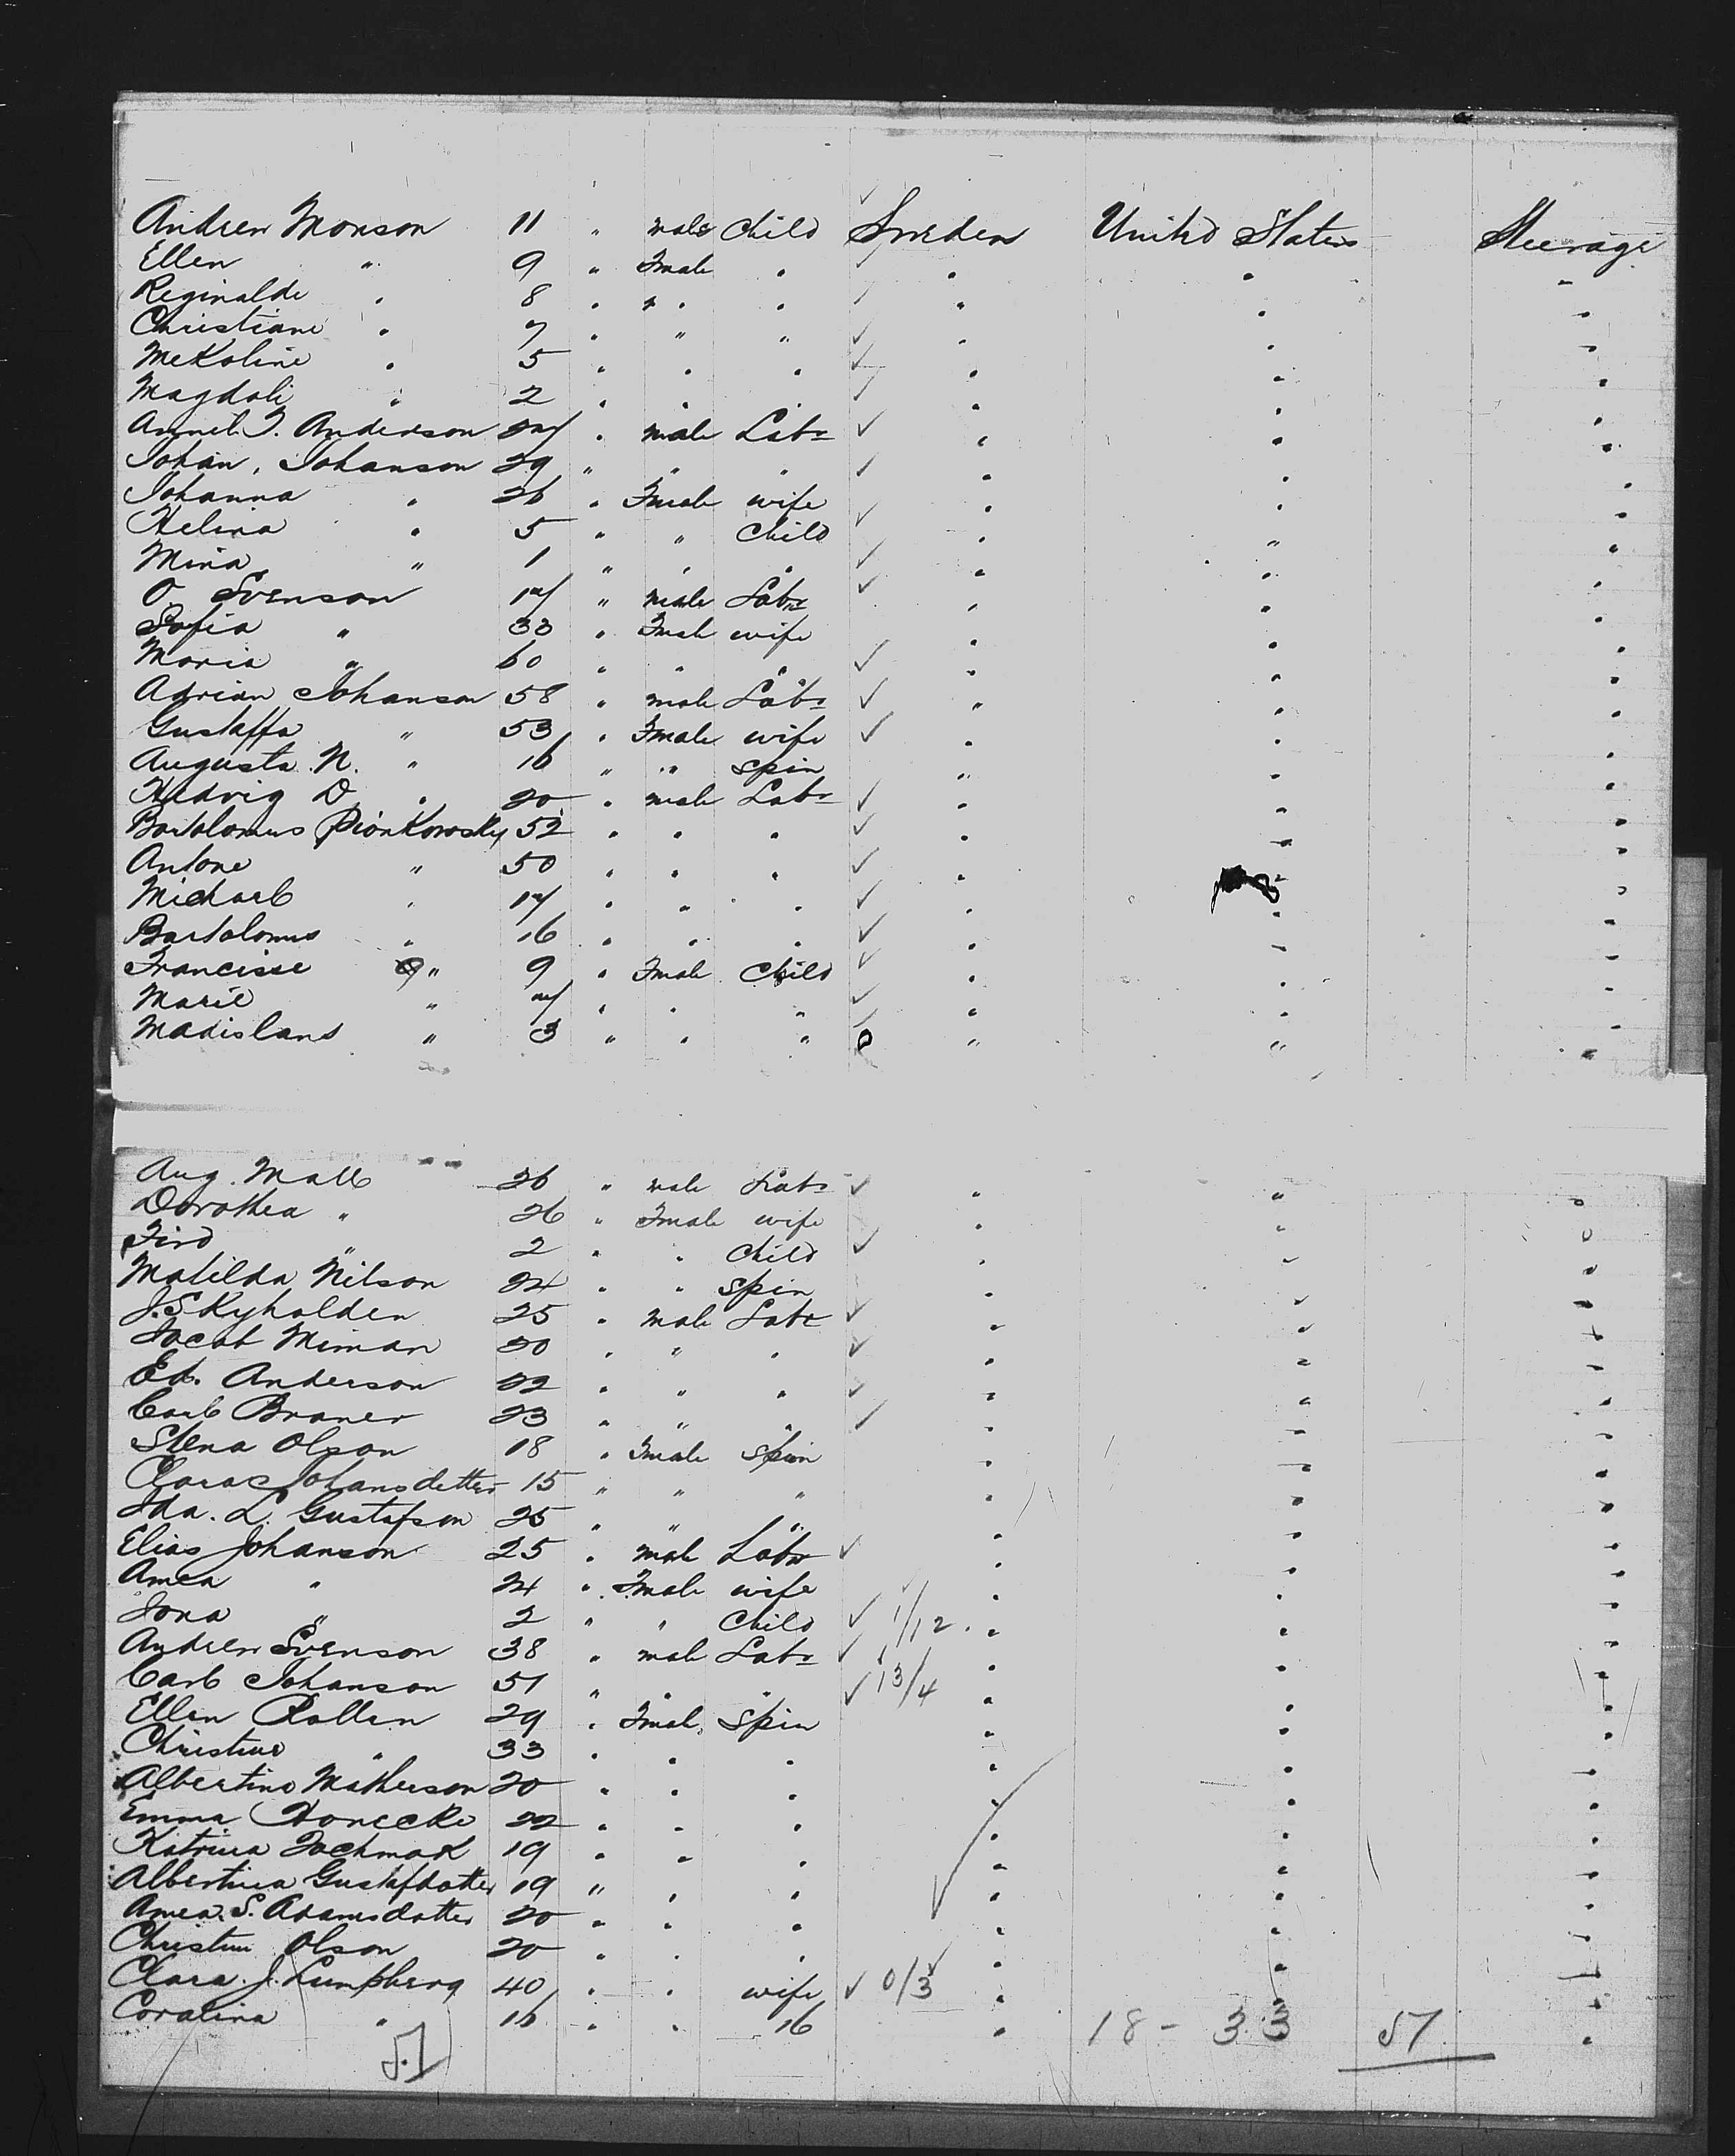 Andrew Monson 11 " male Child Sweden United States Steerage
Ellen " 9 " Fmale " " " "
Reginalde " 8 " " " " " "
Christiane " 7 " " " " " "
Mekoline " 5 " " " " " "
Magdali " 2 " " " " " "
Anderson 27 " male Labr " " "
Johan. Johanson 29 " " " " " "
Johanna " 26 " Fmale wife " " "
Helina " 5 " " Child " " "
Mina " 1 " " " " " "
O Svenson 17 " male Labr " " "
Sofia " 33 " Fmale wife " " "
Maria " 60 " " " " " "
Adrian Johanson 58 " male Labr " " "
Gustaffa " 53 " Fmale wife " " "
Augusta N. " 16 " " Spin " " "
Hedvig D " 20 " male Labr " " "
Bartolomus Pionkowsky 52 " " " " " "
Antone " 50 " " " " " "
Michael " 17 " " " " " "
Bartolomus " 16 " " " " " "
Francisse " 9 " Fmale Child " " "
Marie " 7 " " " " " "
Madislans " 3 " " " " " "
Aug. Mall 26 " male Labr " " "
Dorothea " 26 " Fmale wife " " "
Fird " 2 " " Child " " "
Matilda Nilson 24 " " Spin " " "
J. Skyholden 25 " male Labr " " "
Jacob Miman 20 " " " " " "
Ed. Anderson 22 " " " " " "
Carl Braner 23 " " " " " "
Stena Olson 18 " Fmale Spin " " "
Clara Johansdotter 15 " " " " " "
Ida. L. Gustafson 25 " " " " " "
Elias Johanson 25 " male Labr " " "
Amea " 24 " Fmale wife " " "
Jona " 2 " " Child 1/12 " " "
Andrew Svenson 38 " male Labr " " "
Carl Johanson 51 " " " 13/4 " " "
Ellen Rollen 29 " Fmale Spin " " "
Christine " 33 " " " " " "
Albertine Matherson 20 " " " " " "
Emma Honecke 22 " " " " " "
Katrina Zochmak 19 " " " " " "
Albertina Gustafdotter 19 " " " " " "
Amea. S. Adamsdotter 20 " " " " " "
Christin Olson 20 " " " " " "
Clara. J. Lumpberg 40 " " wife 0/3 " " "
Coralina " 16 " " 16 " 18 - 33 51 "
51